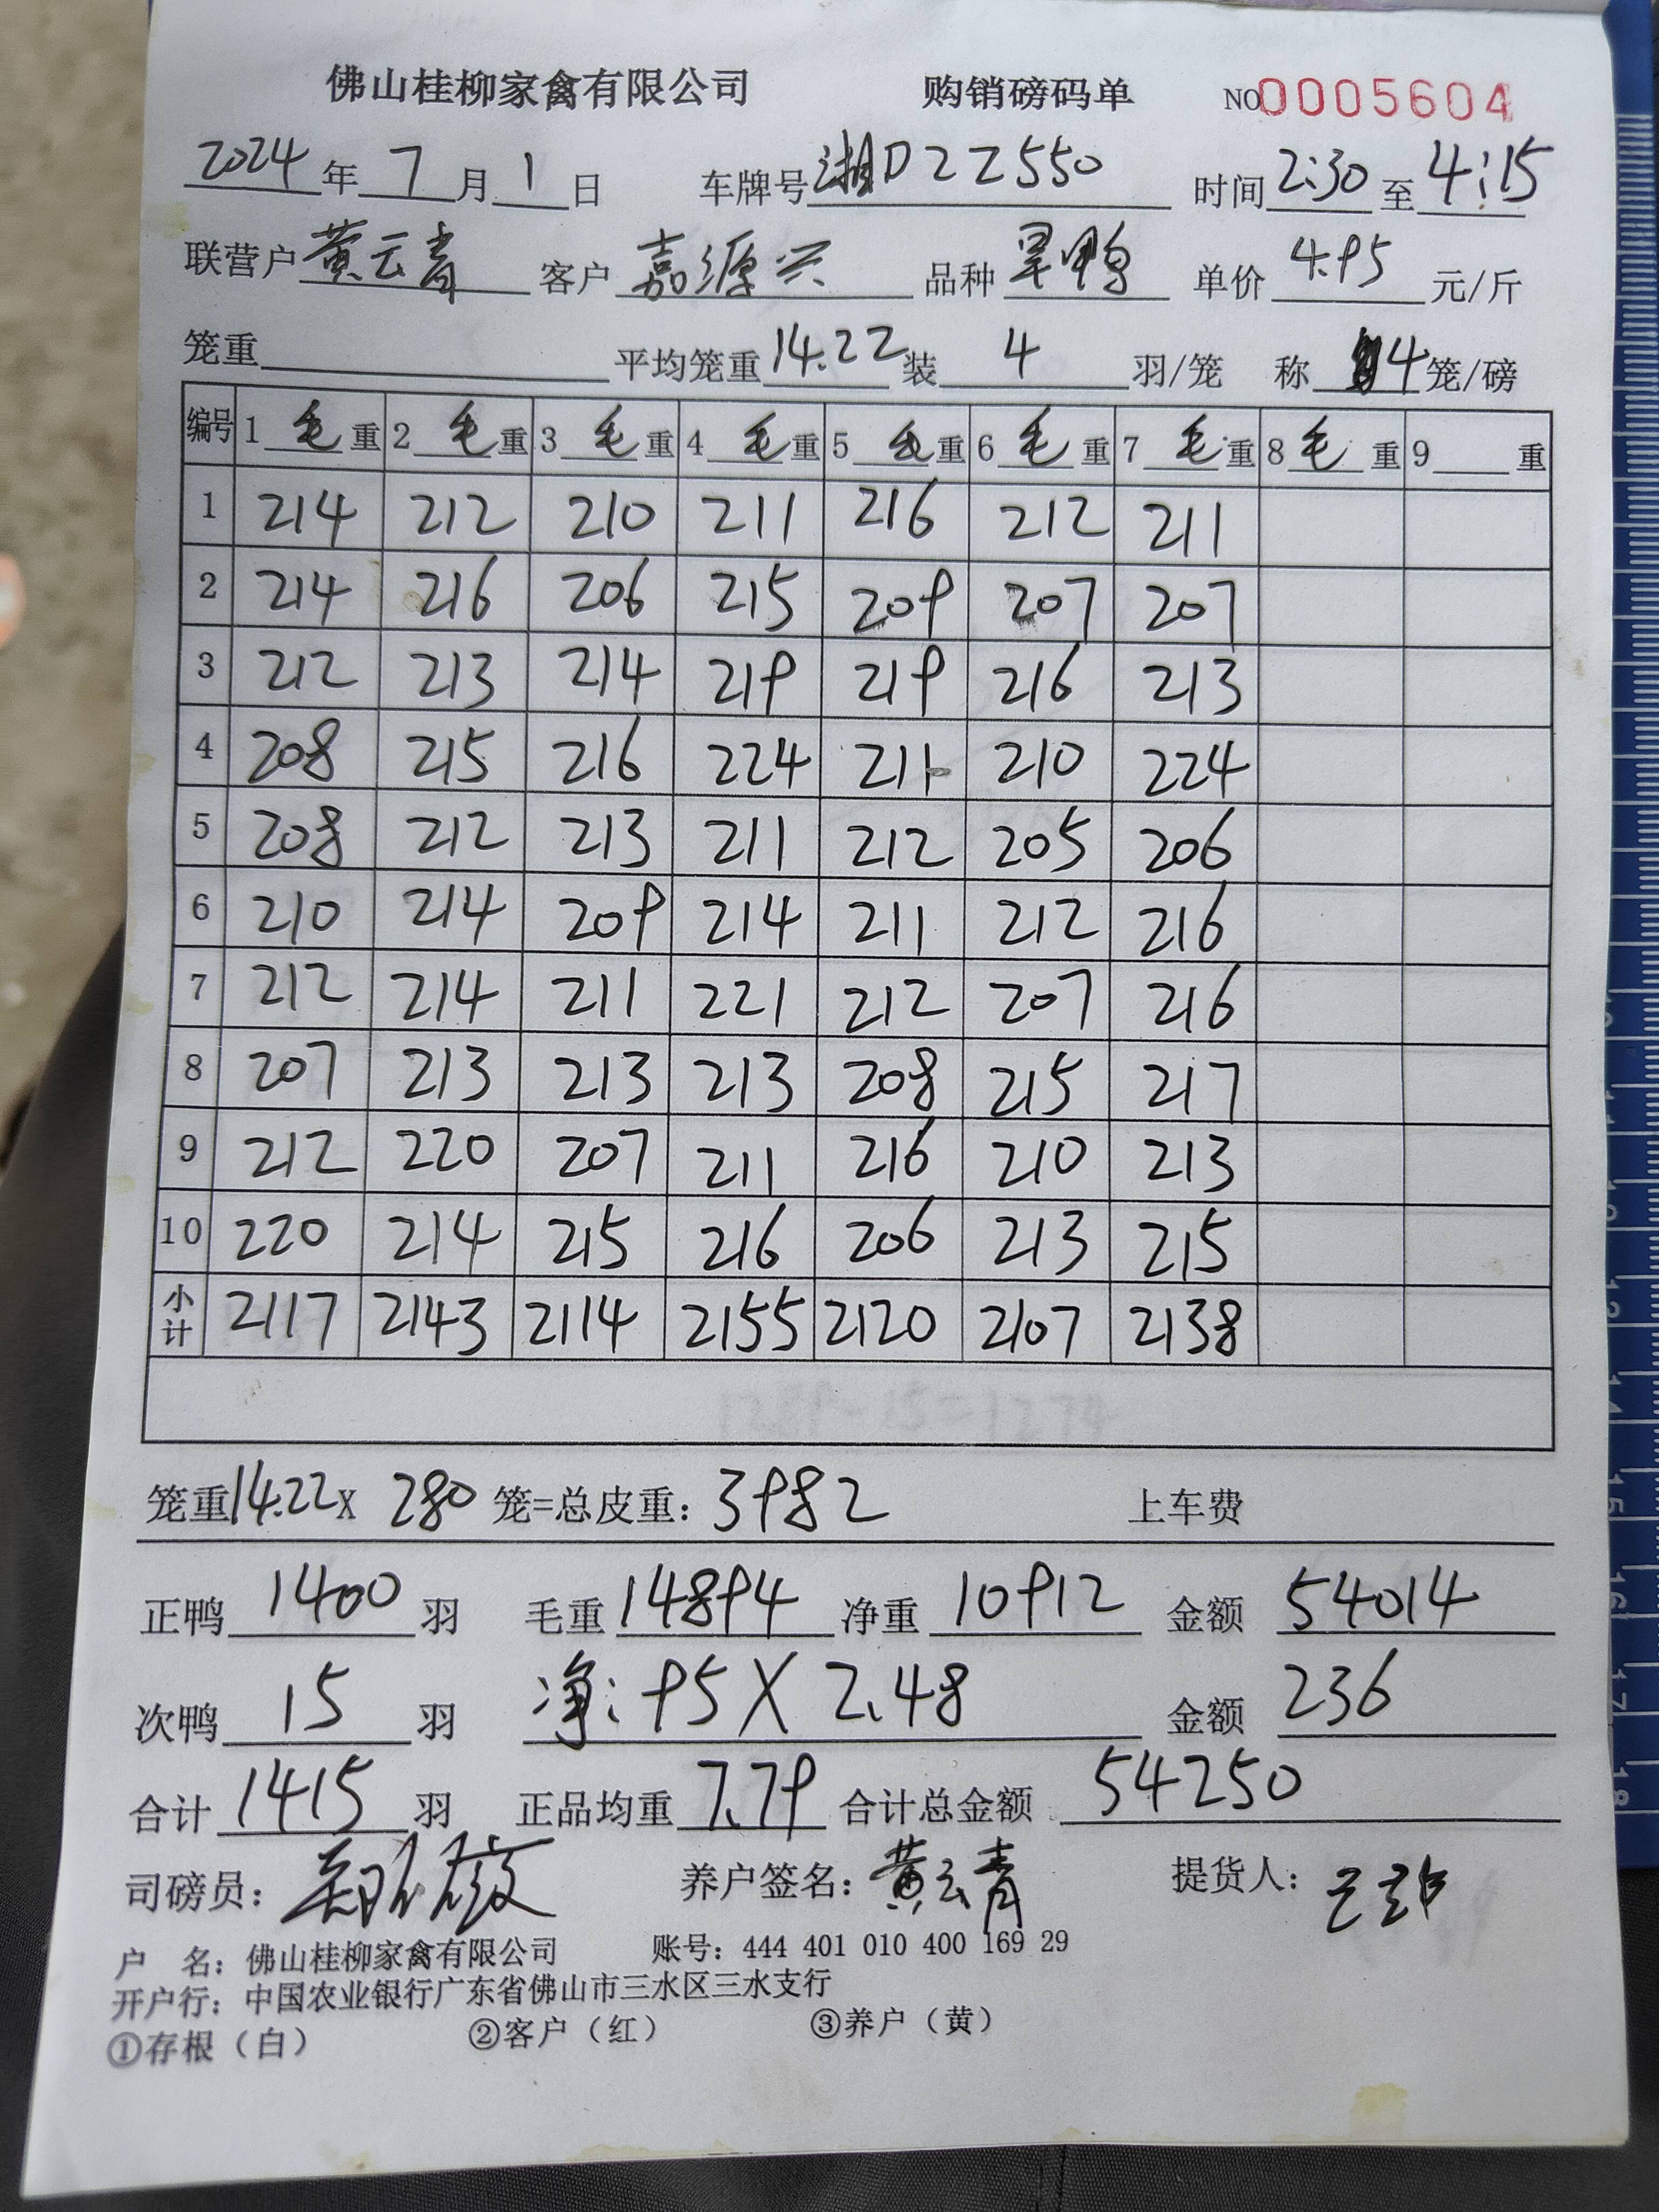 佛山桂柳家禽有限公司 购销磅码单 NO0005604
2024年7月1日 车牌号湘DZZ550 时间2:30至4:15
联营户黄云青 客户嘉源兴 品种旱鸭 单价4.95元/斤
笼重 平均笼重14.22装4羽/笼 称4笼/磅
编号 1毛重 2毛重 3毛重 4毛重 5毛重 6毛重 7毛重 8毛重 9重
1 214 212 210 211 216 212 211
2 214 216 206 215 209 207 207
3 212 213 214 219 219 216 213
4 208 215 216 224 211 210 224
5 208 212 213 211 212 205 206
6 210 214 209 214 211 212 216
7 212 214 211 221 212 207 216
8 207 213 213 213 208 215 217
9 212 220 207 211 216 210 213
10 220 214 215 216 206 213 215
小计 2117 2143 2114 2155 2120 2107 2138
笼重14.22X 280笼=总皮重:3982 上车费
正鸭1400羽 毛重14894 净重10912 金额54014
次鸭15羽 净:95X2.48 金额236
合计1415羽 正品均重7.79 合计总金额54250
司磅员: 养户签名:黄云青 提货人:
户 名:佛山桂柳家禽有限公司 账号:444 401 010 400 169 29
开户行:中国农业银行广东省佛山市三水区三水支行
①存根(白) ②客户(红) ③养户(黄)